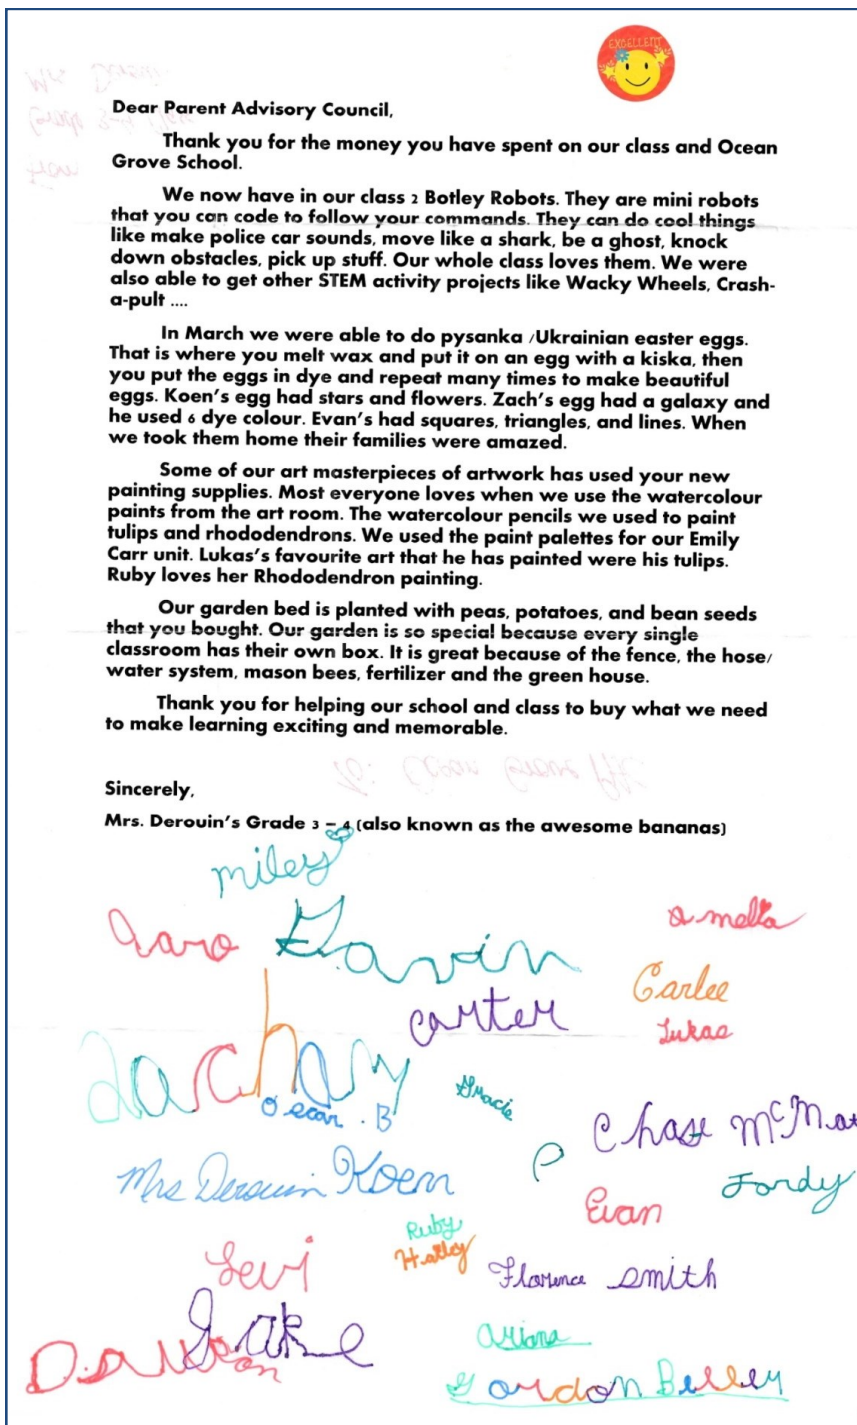 EXCELLENT
Dear Parent Advisory Council,
Thank you for the money you have spent on our class and Ocean
Grove School.
We now have in our class 2 Botley Robots. They are mini robots
that you can code to follow your commands. They can do cool things
like make police car sounds, move like a shark, be a ghost, knock
down obstacles, pick up stuff. Our whole class loves them. We were
also able to get other STEM activity projects like Wacky Wheels, Crash-
a-pult ....
In March we were able to do pysanka /Ukrainian easter eggs.
That is where you melt wax and put it on an egg with a kiska, then
you put the eggs in dye and repeat many times to make beautiful
eggs. Koen's egg had stars and flowers. Zach's egg had a galaxy and
he used 6 dye colour. Evan's had squares, triangles, and lines. When
we took them home their families were amazed.
Some of our art masterpieces of artwork has used your new
painting supplies. Most everyone loves when we use the watercolour
paints from the art room. The watercolour pencils we used to paint
tulips and rhododendrons. We used the paint palettes for our Emily
Carr unit. Lukas's favourite art that he has painted were his tulips.
Ruby loves her Rhododendron painting.
Our garden bed is planted with peas, potatoes, and bean seeds
that you bought. Our garden is so special because every single
classroom has their own box. It is great because of the fence, the hose/
water system, mason bees, fertilizer and the green house.
Thank you for helping our school and class to buy what we need
to make learning exciting and memorable.
Sincerely,
Mrs. Derouin's Grade 3 – 4 (also known as the awesome bananas)
miley
amelia
Gavin
Carlee
carter
Lukas
Zachary
Gracie
Oscar . B
Chase
Mrs Derouin
Koen
Jordy
Evan
Ruby
Hailey
Levi
Florence smith
Jake
Ariana
Gordon Belley